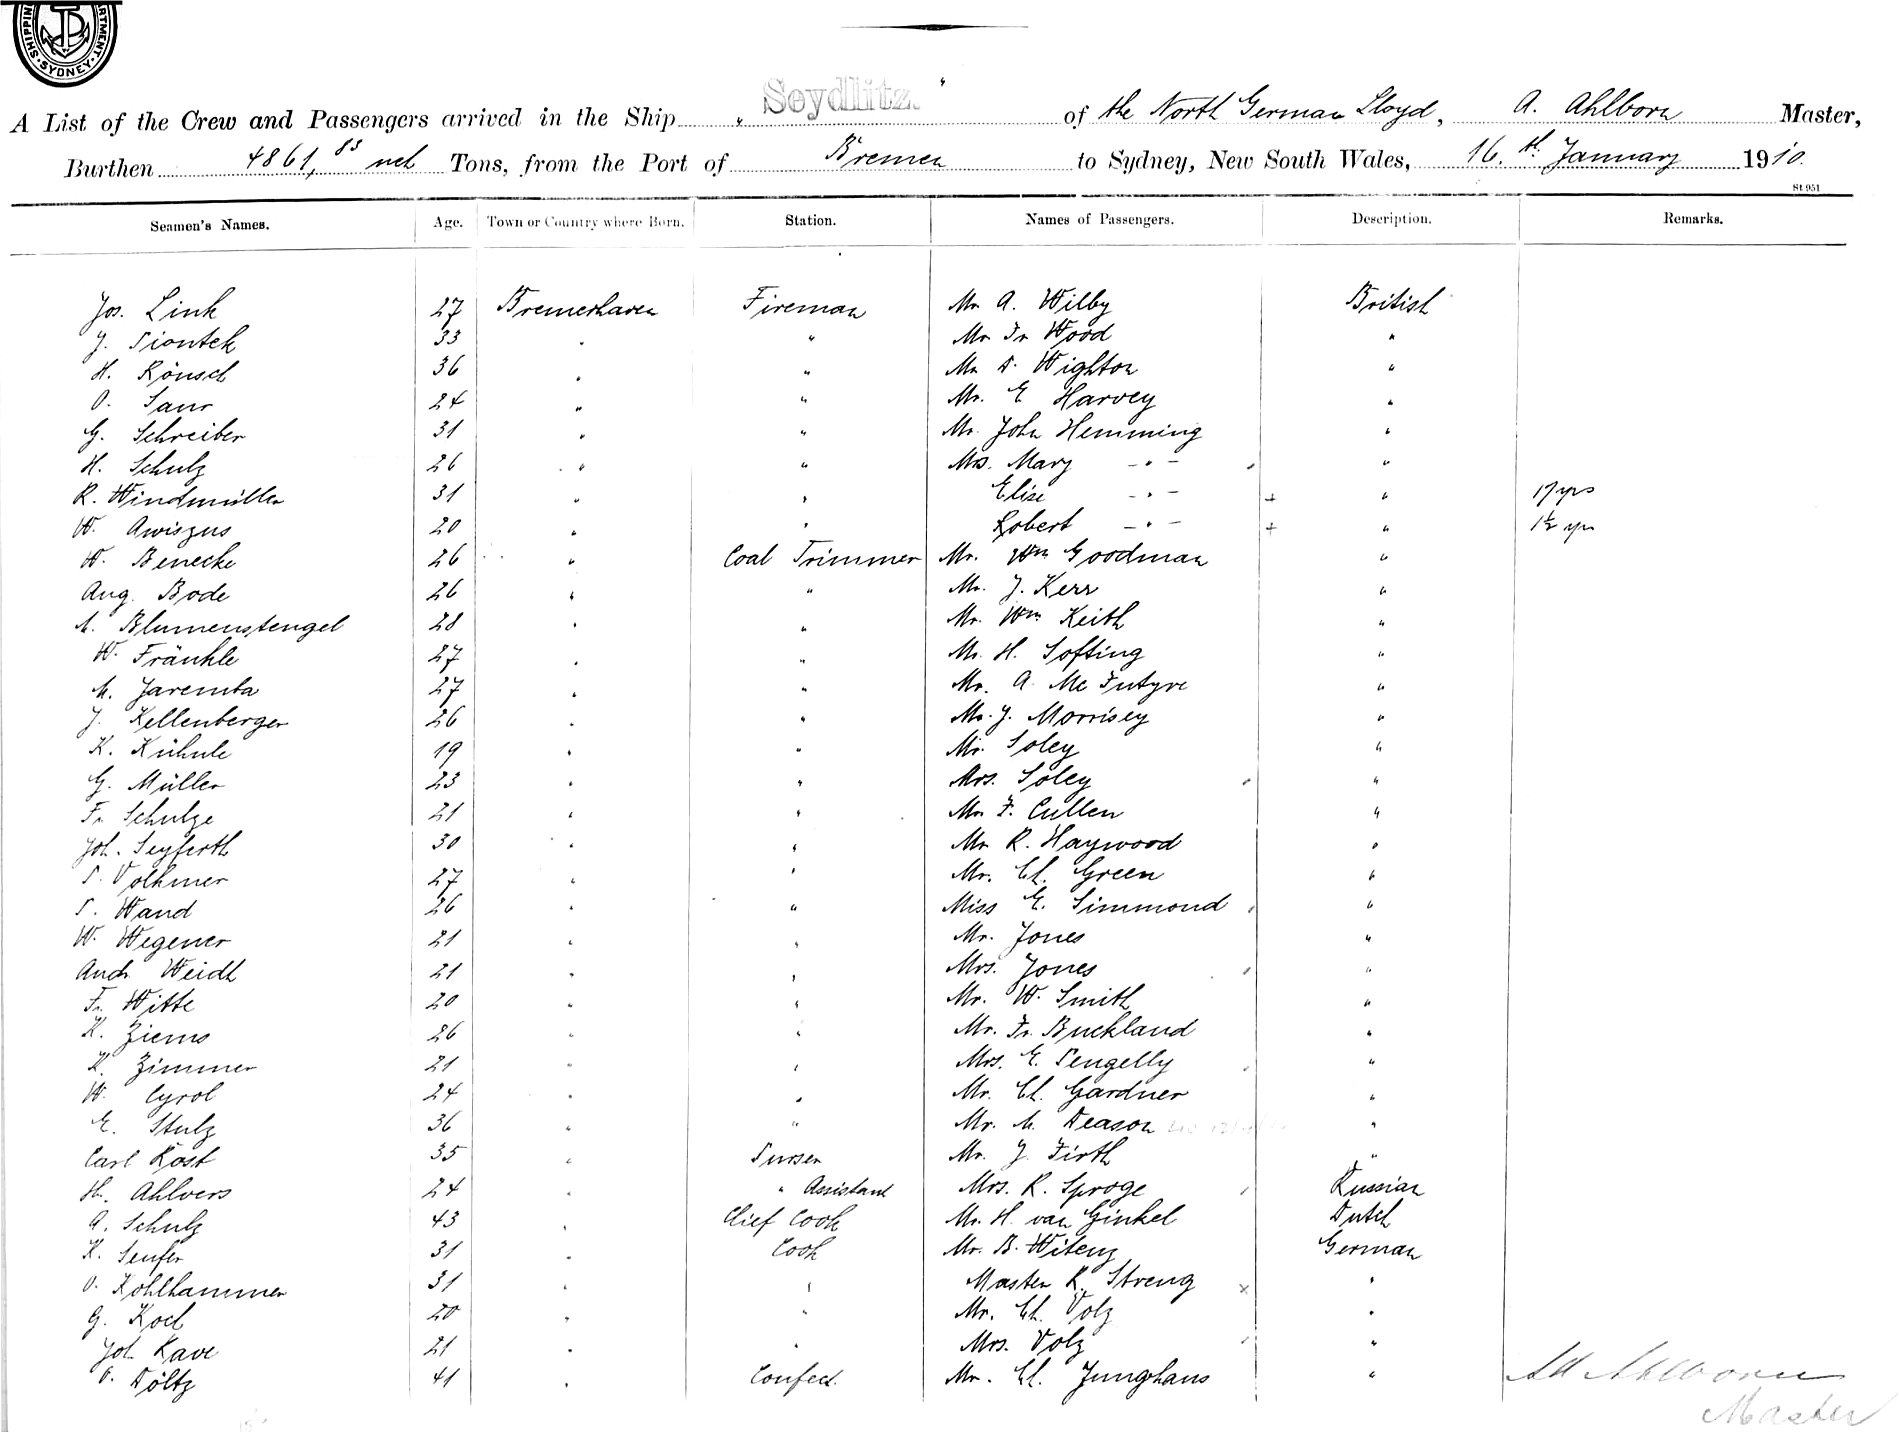 SHIPPING DEPARTMENT SYDNEY
A List of the Crew and Passengers arrived in the Ship „ Seydlitz “ of the North German Lloyd, A. Ahlborn Master,
Burthen 4861,83 net Tons, from the Port of Bremen to Sydney, New South Wales, 16.th January 1910.
St 951
Seamen's Names. Age. Town or Country where Born. Station. Names of Passengers. Description. Remarks.
Jos. Link 27 Bremerhaven Fireman Mr. A. Wilby British
J. Piontek 33 " " Mr. Fr. Wood "
H. Rönsch 36 " " Mr. D. Wighton "
O. Saur 24 " " Mr. E. Harvey "
G. Schreiber 31 " " Mr. John Hemming "
H. Schulz 26 " " Mrs. Mary - " - "
R. Windmüller 31 " " Elise - " - + " 17 yrs
W. Awiszus 20 " " Robert - " - + " 1½ yr
W. Benecke 26 " Coal Trimmer Mr. Wm Goodman "
Aug. Bode 26 " " Mr. J. Kerr "
M. Blumenstengel 28 " " Mr. Wm Keith "
W. Fränkle 27 " " Mr. H. Softing "
M. Jaremba 27 " " Mr. A. Mc Intyre "
J. Kellenberger 26 " " Mr. J. Morrisey "
K. Kühnle 19 " " Mr. Soley "
G. Müller 23 " " Mrs. Soley "
Fr. Schulze 21 " " Mr. F. Cullen "
Joh. Seyferth 30 " " Mr. R. Haywood "
P. Volkmer 27 " " Mr. Ch. Green "
P. Wand 26 " " Miss E. Simmond "
W. Wegener 21 " " Mr. Jones "
Andr. Weidt 21 " " Mrs. Jones "
Fr. Witte 20 " " Mr. W. Smith "
K. Ziems 26 " " Mr. Fr. Buckland "
K. Zimmer 21 " " Mrs. E. Pengelly "
W. Cyrol 24 " " Mr. Ch. Gardner "
E. Stulz 36 " " Mr. M. Deason "
Carl Kost 35 " Purser Mr. J. Firth "
H. Ahlvers 24 " " Assistant Mrs. R. Sproge Russian
A. Schulz 43 " Chief Cook Mr. H. van Ginkel Dutch
K. Senfer 31 " Cook Mr. B. Witenz German
O. Kohlhammer 31 " " Master R. Streng x "
G. Koch 20 " " Mr. Ch. Volz "
Joh. Kave 21 " " Mrs. Volz "
O. Döltz 41 " Confect. Mr. Ch. Junghans "
Ad Ahlborn
Master